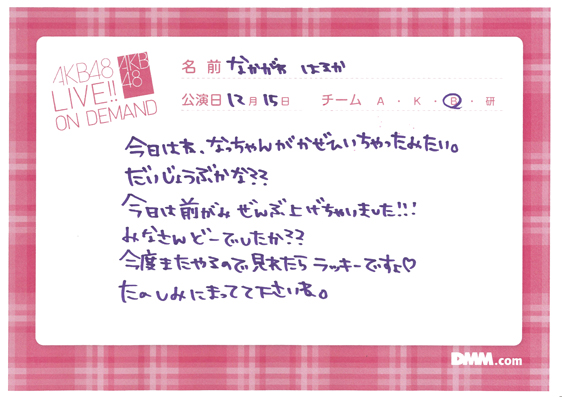 AKB48
LIVE!!
ON DEMAND
AKB
48
名前 なかがわ はるか
公演日 12月15日 チーム A・K・B・研
今日はね、なっちゃんがかぜひいちゃったみたい。
だいじょうぶかな??
今日は前がみ ぜんぶ上げちゃいました!!!
みなさんどーでしたか??
今度またやるので見れたら ラッキーですよ♡
たのしみにまってて下さいね。
DMM.com